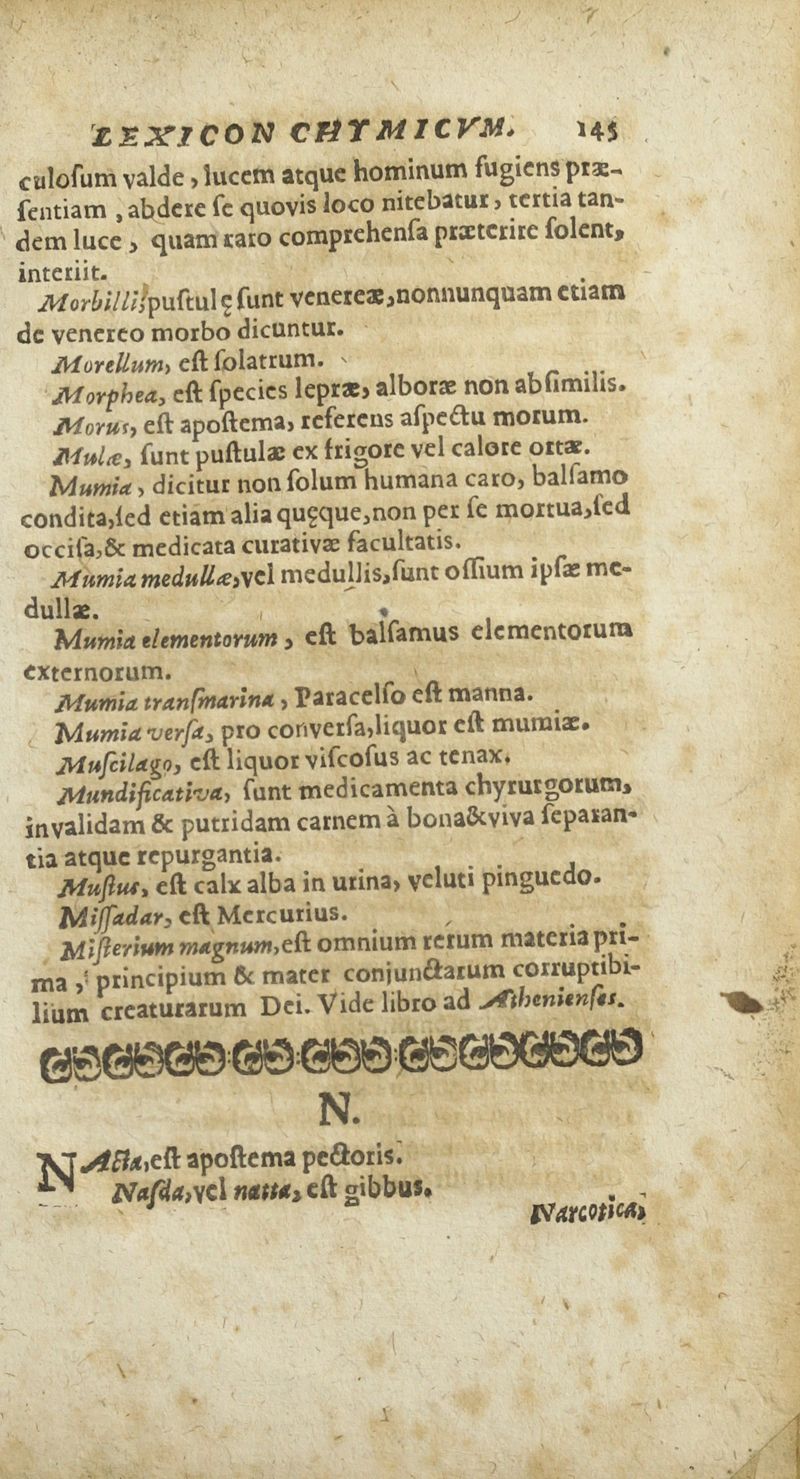 LEXICON CHYMICVM. 145
culoſum valde, lucem atque hominum fugiens præ-
ſentiam, abdere ſe quovis loco nitebatur, tertia tan-
dem luce, quam raro comprehenſa præterire ſolent,
interiit.
Morbilli, puſtulę ſunt venereæ, nonnunquam etiam
de venereo morbo dicuntur.
Morellum, eſt ſolatrum.
Morphea, eſt ſpecies lepræ, alboræ non abſimilis.
Morus, eſt apoſtema, referens aſpectu morum.
Mulæ, ſunt puſtulæ ex frigore vel calore ortæ.
Mumia, dicitur non ſolum humana caro, balſamo
condita, ſed etiam alia quęque, non per ſe mortua, ſed
occiſa, & medicata curativæ facultatis.
Mumia medullæ, vel medullis, ſunt oſſium ipſæ me-
dullæ.
Mumia elementorum, eſt balſamus elementorum
externorum.
Mumia tranſmarina, Paracelſo eſt manna.
Mumia verſa, pro converſa, liquor eſt mumiæ.
Muſcilago, eſt liquor viſcoſus ac tenax.
Mundificativa, ſunt medicamenta chyrurgorum,
invalidam & putridam carnem à bona & viva ſeparan-
tia atque repurgantia.
Muſtus, eſt calx alba in urina, veluti pinguedo.
Miſſadar, eſt Mercurius.
Miſterium magnum, eſt omnium rerum materia pri-
ma, principium & mater conjunctarum corruptibi-
lium creaturarum Dei. Vide libro ad Athenienſes.
N.
NActa, eſt apoſtema pectoris.
Naſda, vel natta, eſt gibbus.
Narcotica,